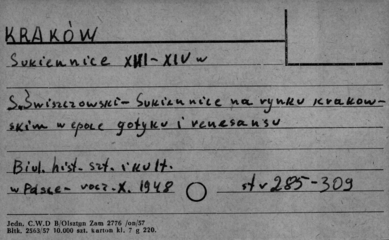 KRAKÓW
Sukiennice XIII-XIV w
S. Świszczowski - Sukiennice na rynku krakow-
skim w epoce gotyku i renesansu
Biul. hist. szt. i kult.
w Polsce - rocz. X. 1948 str 285-309
Jedn. C.W.D B/Olsztyn Zam 2776 /oa/57
Bltk. 2563/57 10.000 szt. karton kl. 7 g 220.